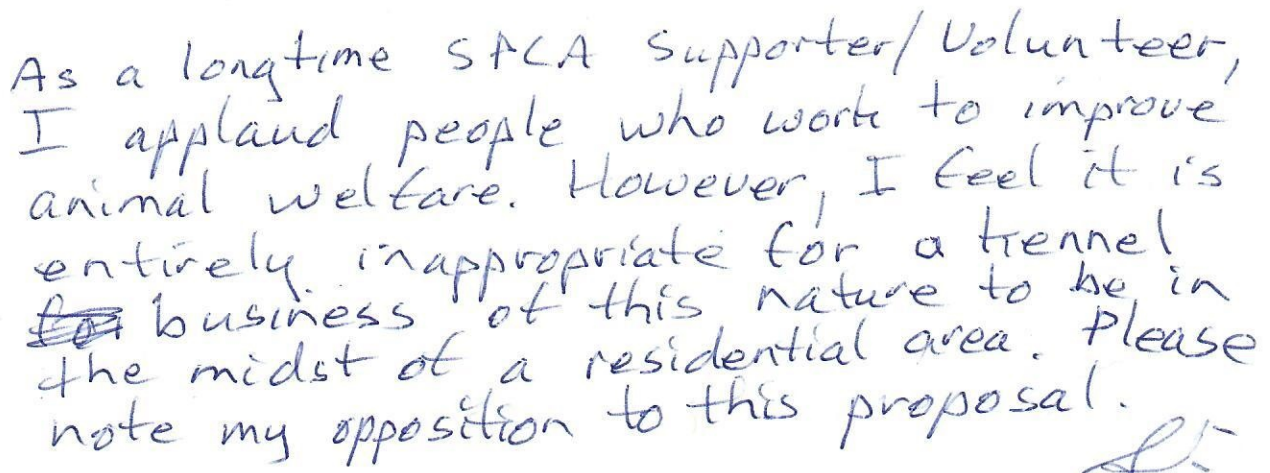 As a longtime SPCA Supporter/Volunteer,
I applaud people who work to improve
animal welfare. However, I feel it is
entirely inappropriate for a kennel
business of this nature to be in
the midst of a residential area. Please
note my opposition to this proposal.